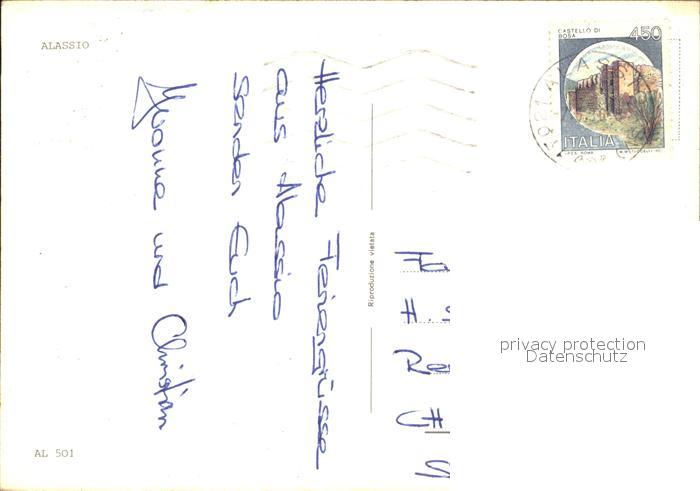 ALASSIO
Herzliche Feriengrüsse
aus Alassio
senden Euch
Yvonne und Christian
AL 501
Riproduzione vietata
CASTELLO DI
BOSA
450
ITALIA
H. S
Re
CH 9
privacy protection
Datenschutz